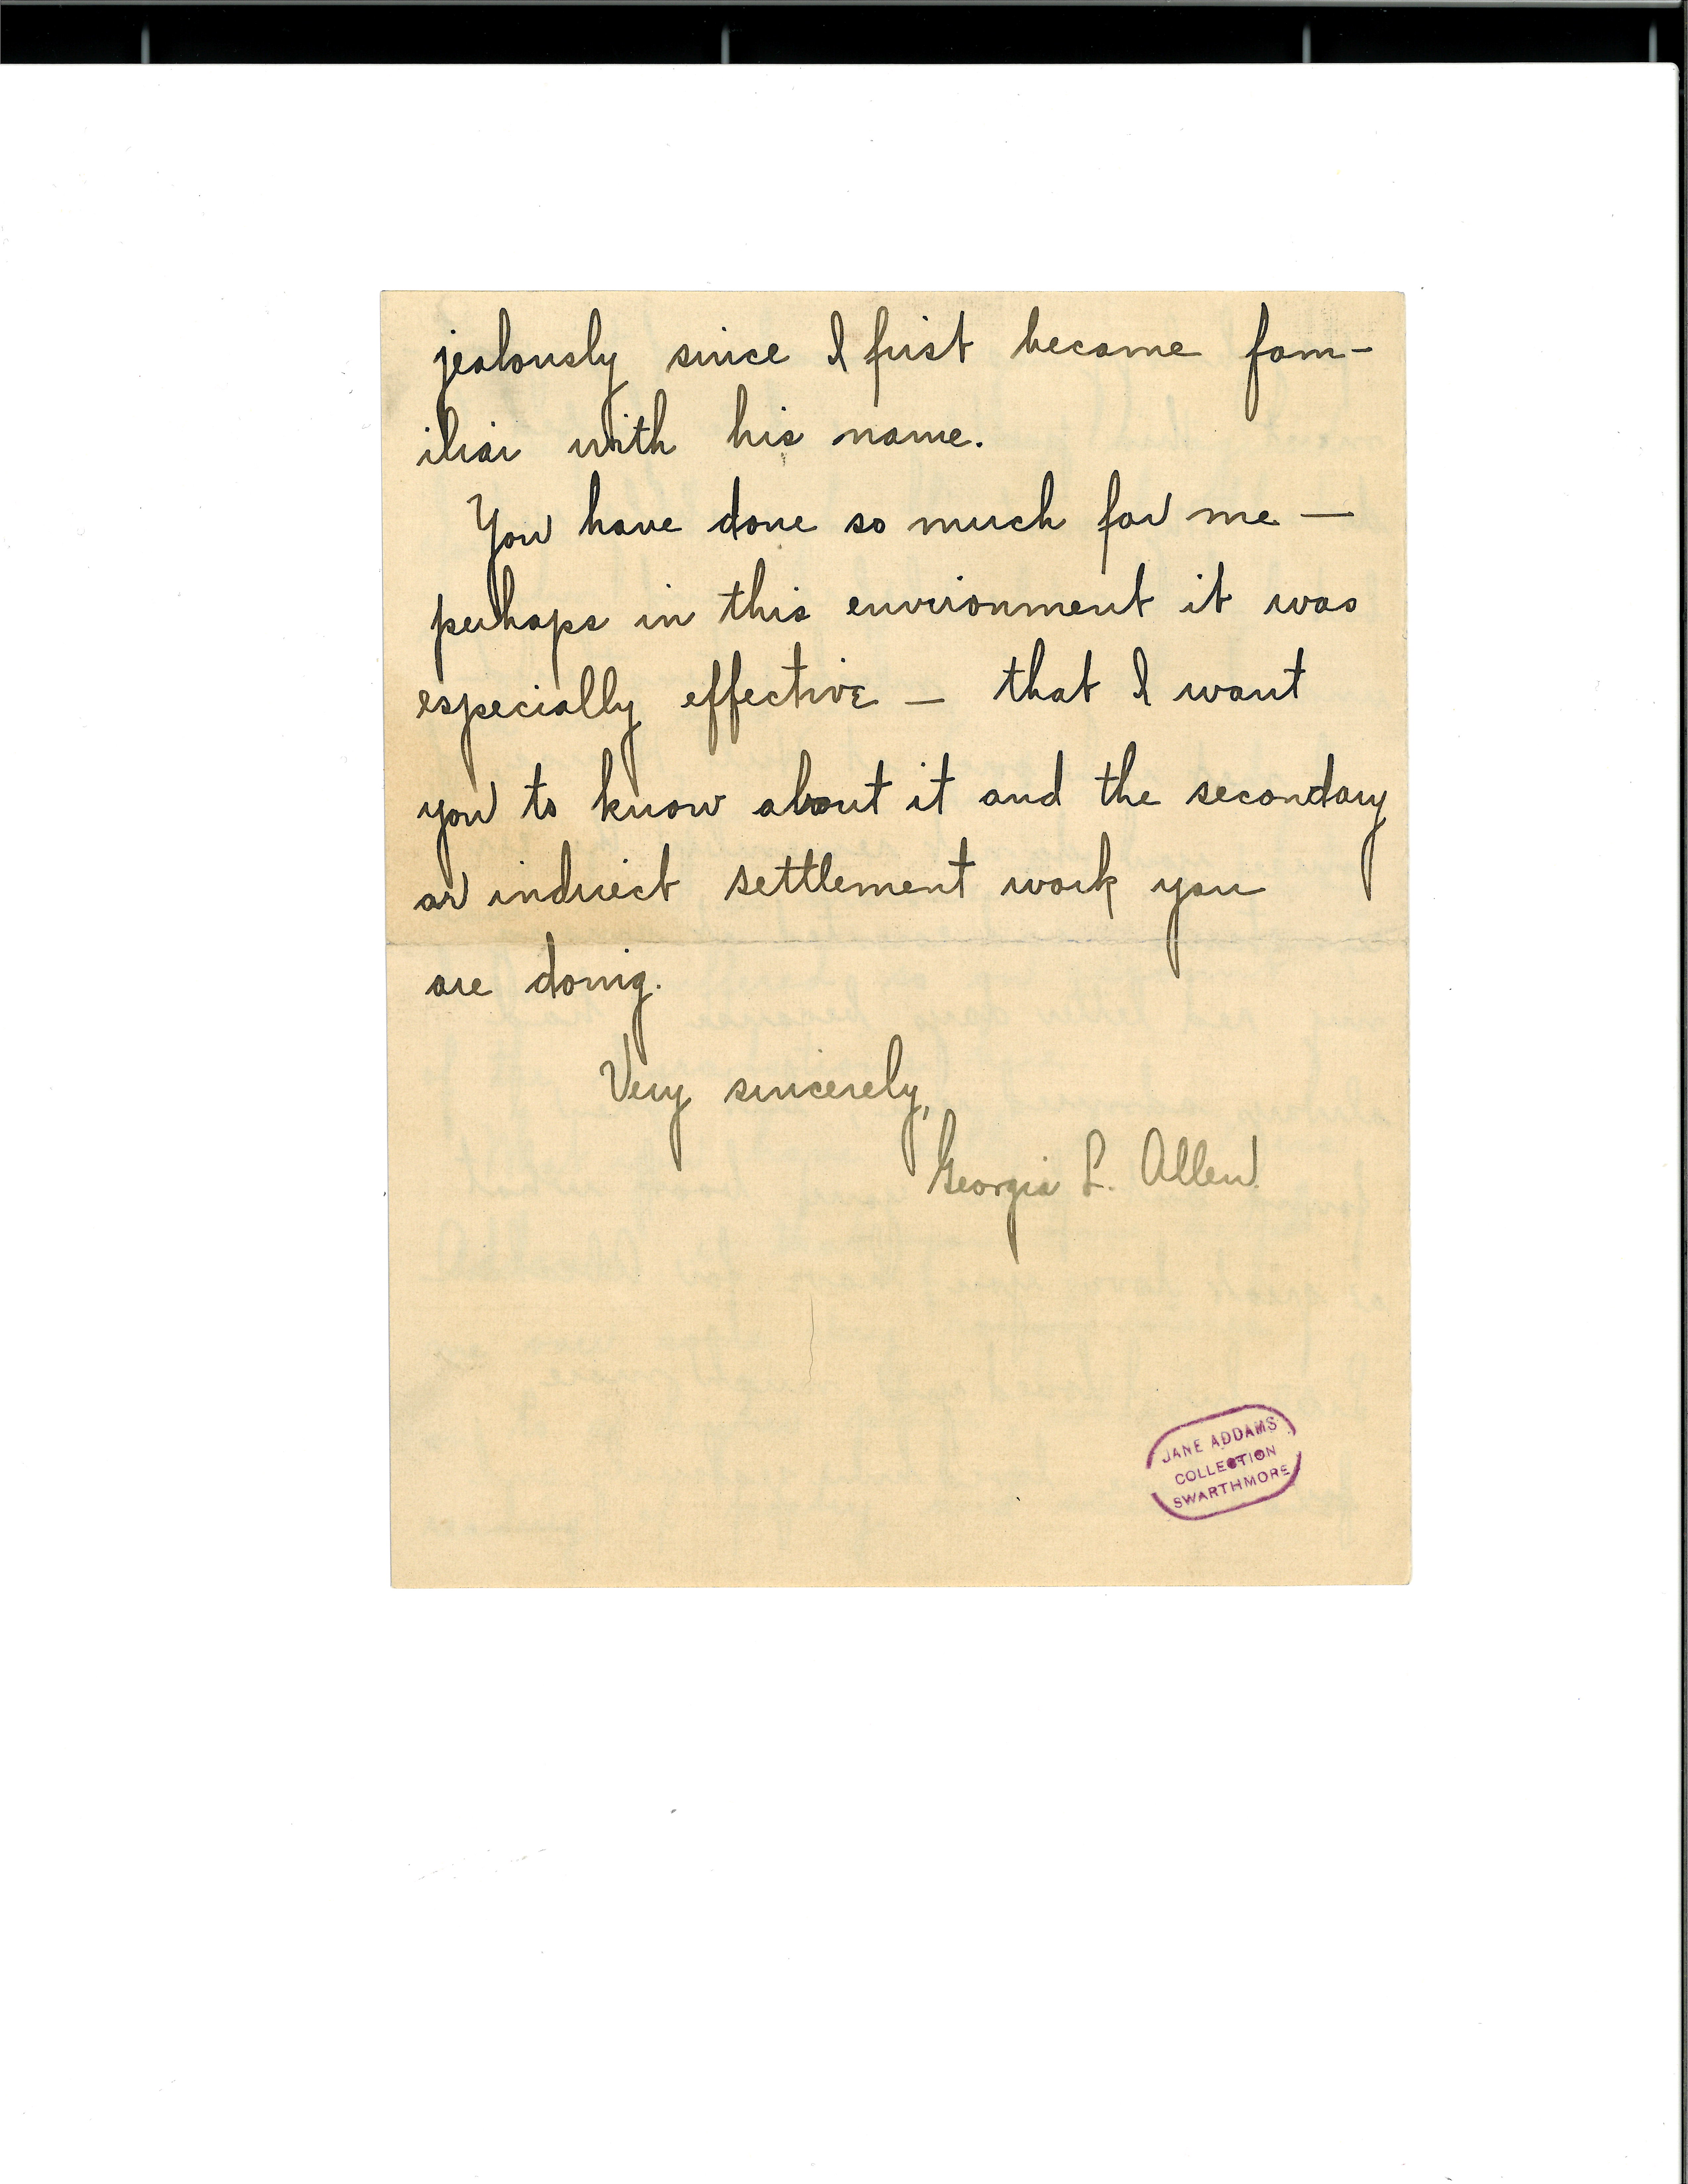 jealously since I first became fam-
iliar with his name.
You have done so much for me —
perhaps in this environment it was
especially effective — that I want
you to know about it and the secondary
or indirect settlement work you
are doing.
Very sincerely,
Georgia L. Allen.
JANE ADDAMS
COLLECTION
SWARTHMORE